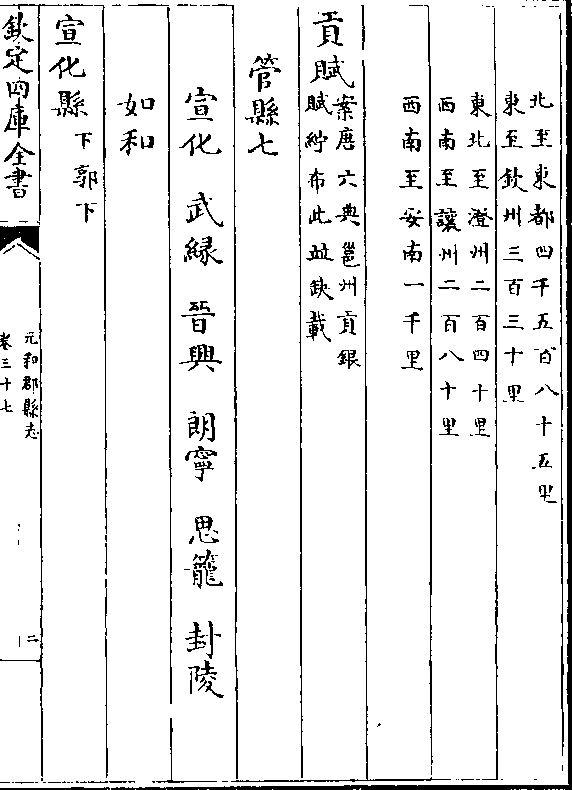 北至東都四千五百八十五里
東至欽州三百三十里
東北至澄州二百四十里
西南至讓州二百八十里
西南至安南一千里
貢賦案唐六典邕州貢銀
賦紵布此並缺載
管縣七
宣化 武緣 晉興 朗寧 思籠 封陵
如和
宣化縣下郭下
欽定四庫全書
元和郡縣志
卷三十七
二